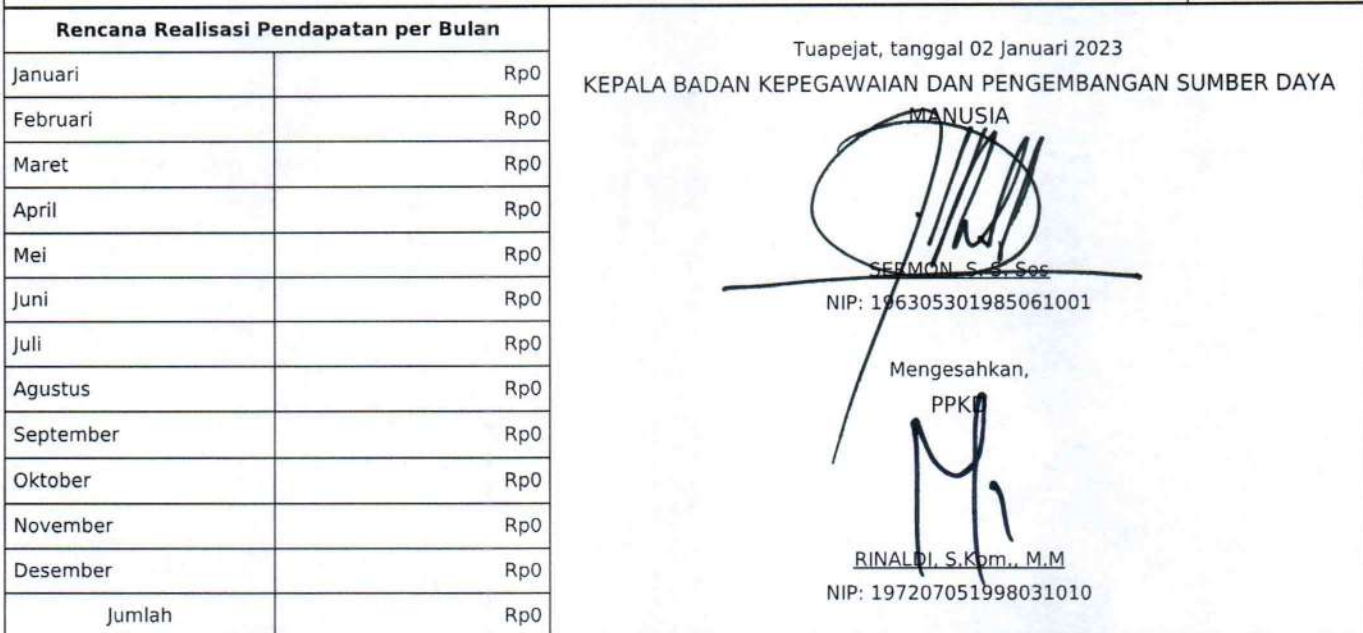 Rencana Realisasi Pendapatan per Bulan
Januari Rp0
Februari Rp0
Maret Rp0
April Rp0
Mei Rp0
Juni Rp0
Juli Rp0
Agustus Rp0
September Rp0
Oktober Rp0
November Rp0
Desember Rp0
Jumlah Rp0
Tuapejat, tanggal 02 Januari 2023
KEPALA BADAN KEPEGAWAIAN DAN PENGEMBANGAN SUMBER DAYA
MANUSIA
SERMON, S. S, Sos
NIP: 196305301985061001
Mengesahkan,
PPKD
RINALDI, S.Kom., M.M
NIP: 197207051998031010